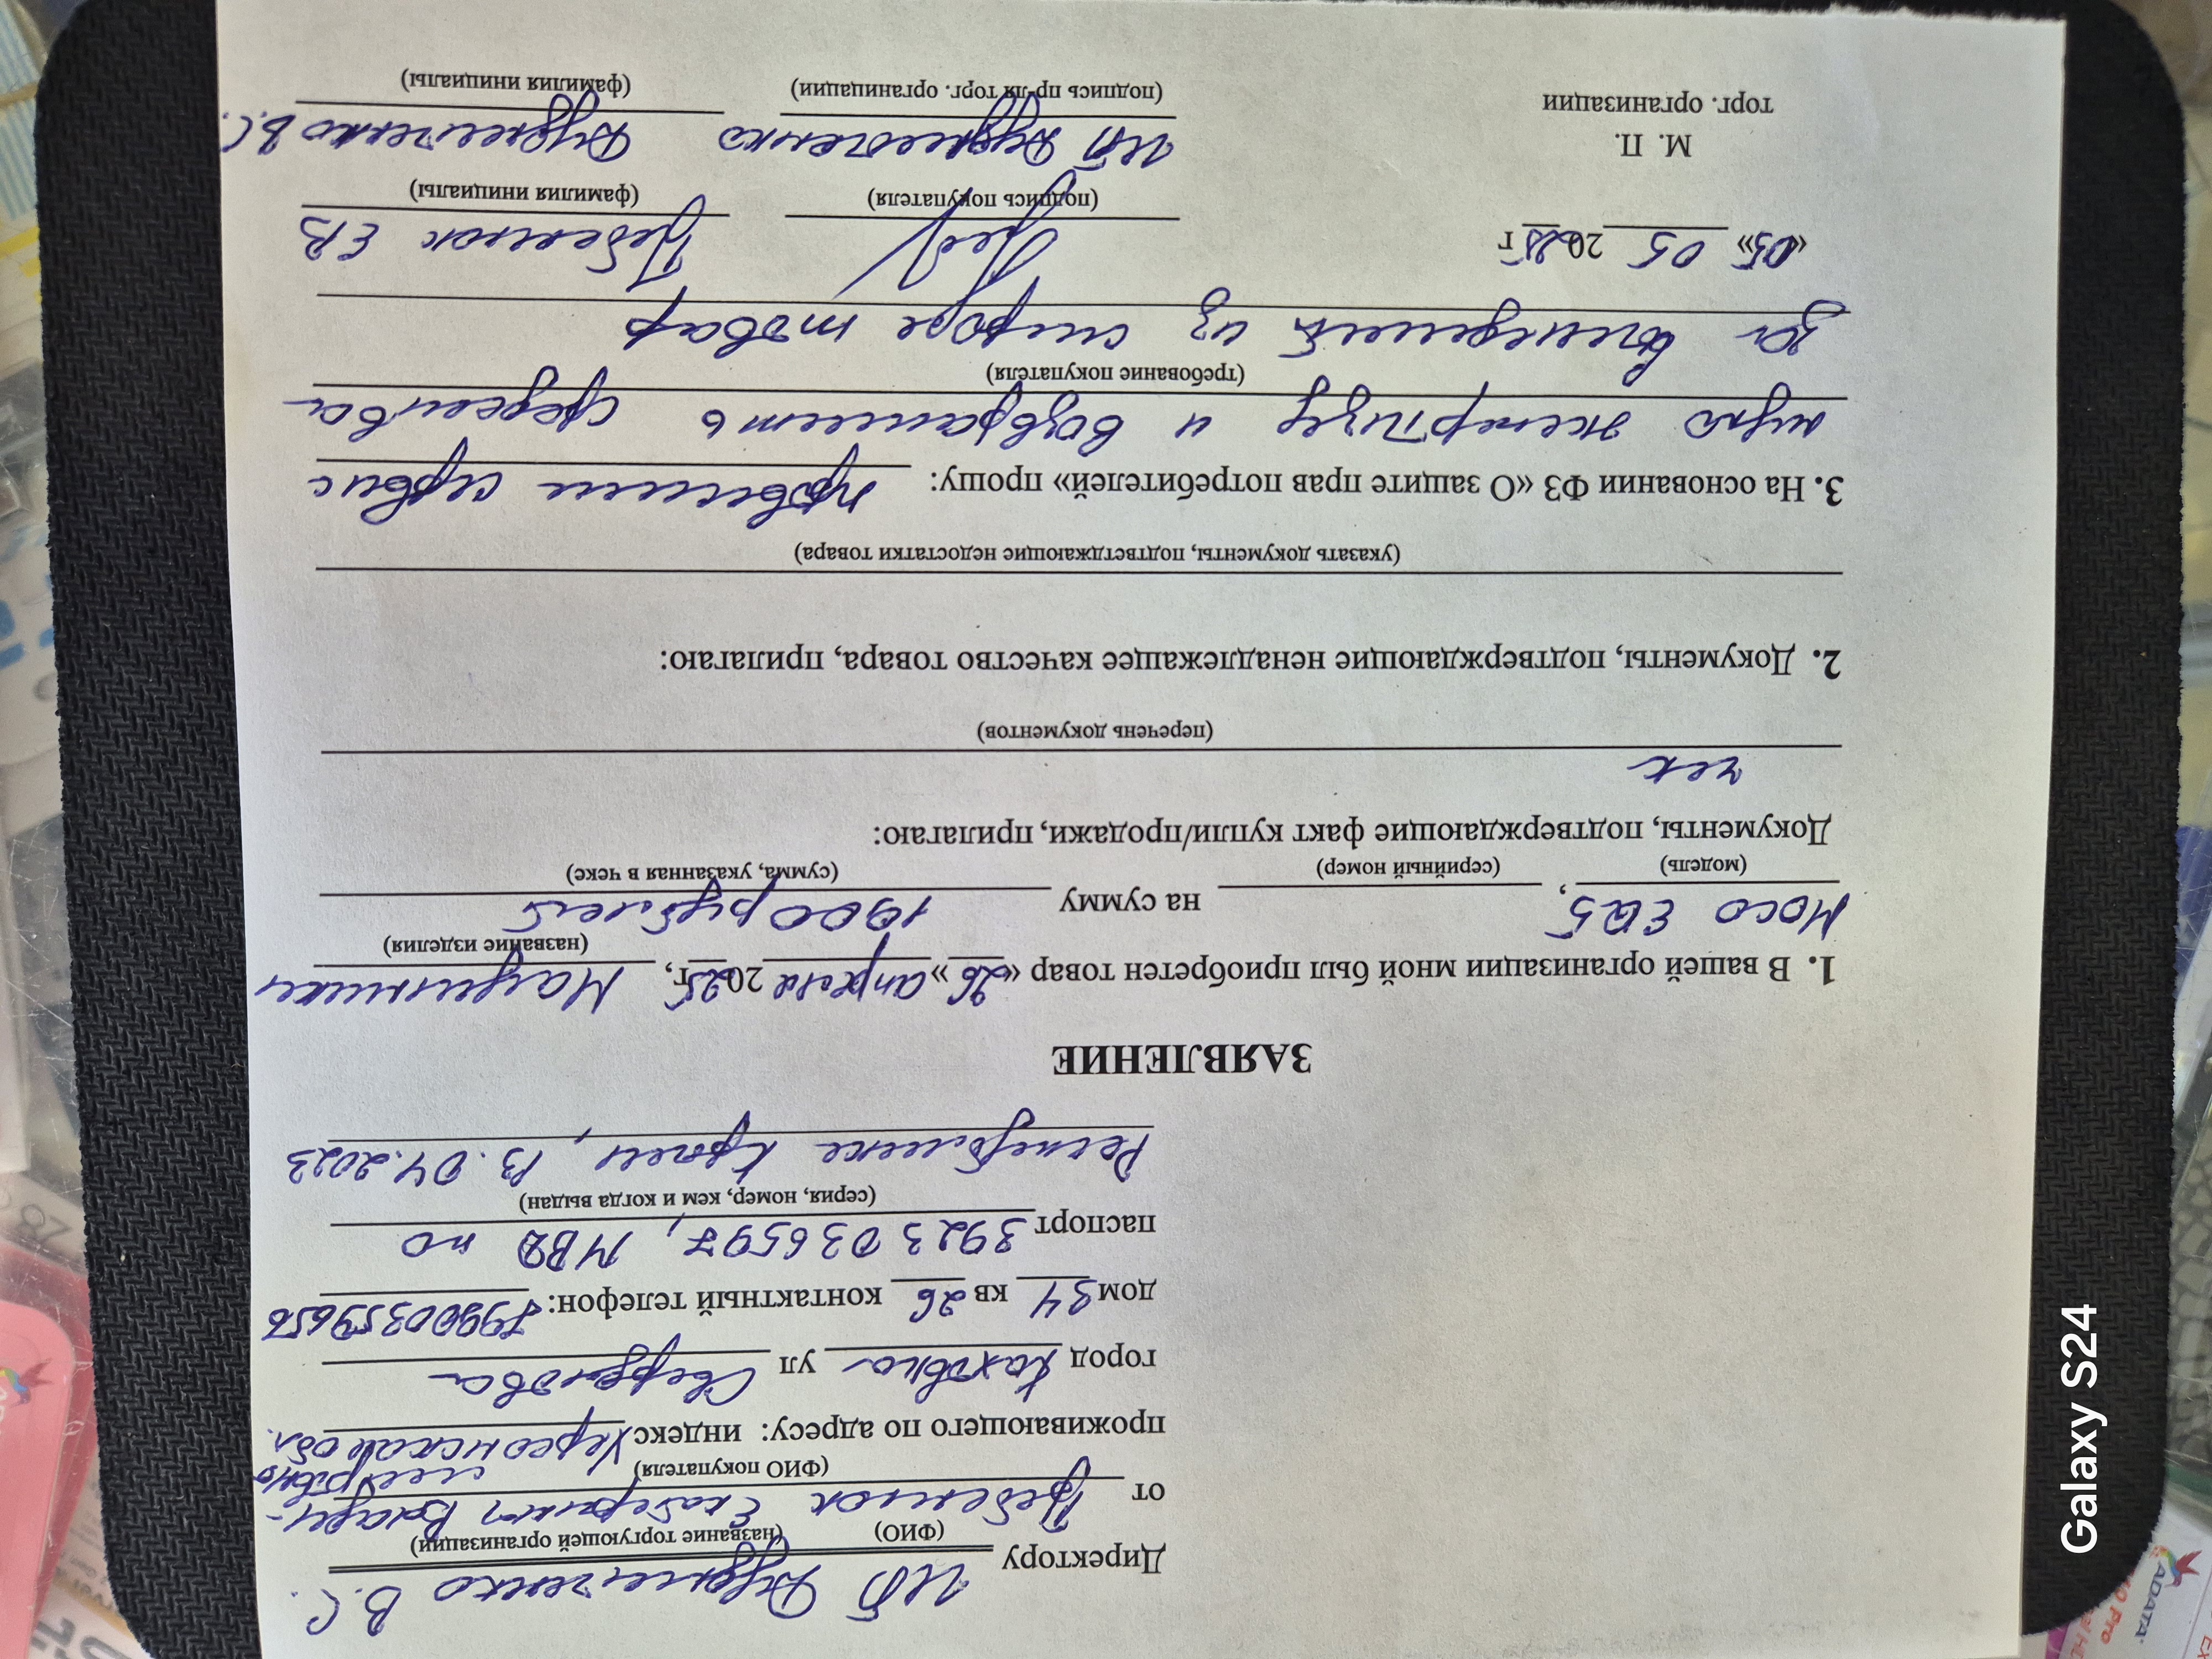 ИП Дудниченко В.С.
Директору
(ФИО) (название торгующей организации)
от Лебенюк Екатерины Влади-
мировны
(ФИО покупателя)
проживающего по адресу: индекс Херсонская обл.
город Каховка ул Свердлова
дом 34 кв 26 контактный телефон: +79900359656
паспорт 3923 036597, МВД по
(серия, номер, кем и когда выдан)
Республике Крым, 13.04.2023
ЗАЯВЛЕНИЕ
1. В вашей организации мной был приобретен товар «26» апреля 2025 г, Наушники
(название изделия)
Hoco EQ5, на сумму 1900 рублей
(модель) (серийный номер) (сумма, указанная в чеке)
Документы, подтверждающие факт купли/продажи, прилагаю:
чек
(перечень документов)
2. Документы, подтверждающие ненадлежащее качество товара, прилагаю:
(указать документы, подтветджающие недостатки товара)
3. На основании ФЗ «О защите прав потребителей» прошу: провести сервис
ную экспертизу и возвратить средства
(требование покупателя)
за вышедший из строя товар
«05» 05 2025 г Лебенюк ЕВ
(подпись покупателя) (фамилия инициалы)
М. П. ИП Дудниченко Дудниченко В.С.
торг. организации (подпись пр-ля торг. организации) (фамилия инициалы)
Galaxy S24
ADATA